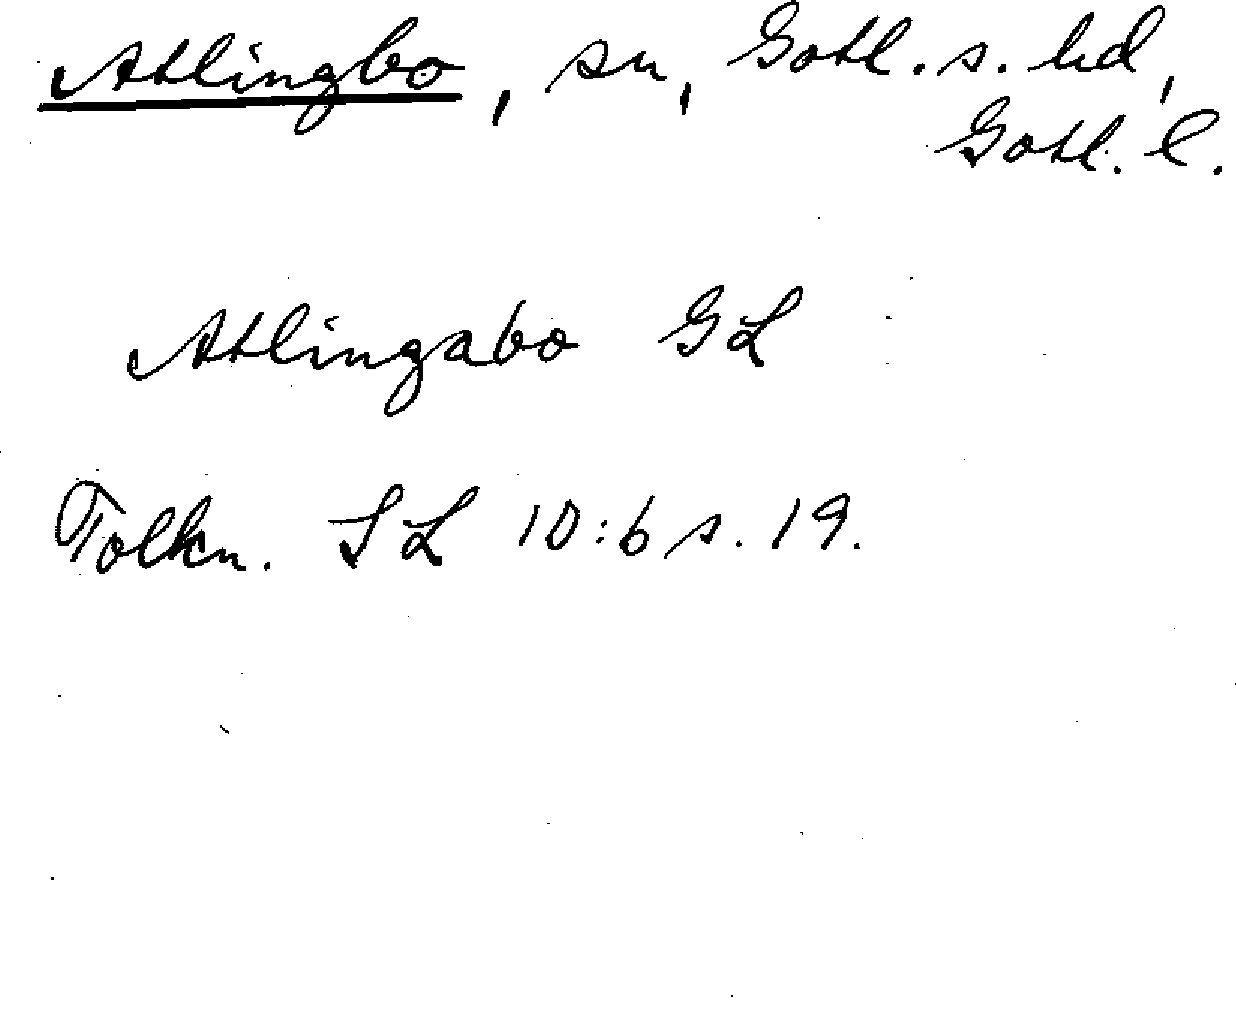 Atlingbo, sn, Gotl. s. hd,
Gotl. l.
Atlingabo GL
Tolkn. SL 10:6 s. 19.